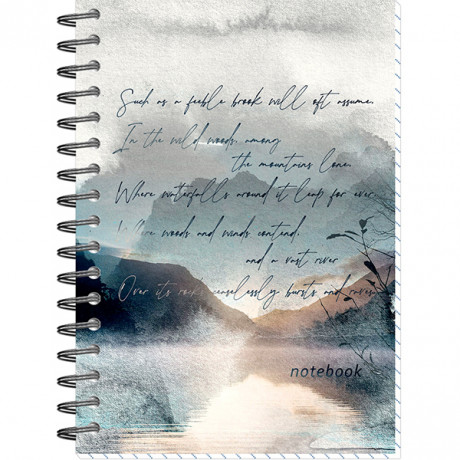 Such as a feeble brook will oft assume.
In the wild woods, among
the mountains lone,
Where waterfalls around it leap for ever
Where woods and winds contend,
and a vast river
Over its rocks ceaselessly bursts and raves.
notebook